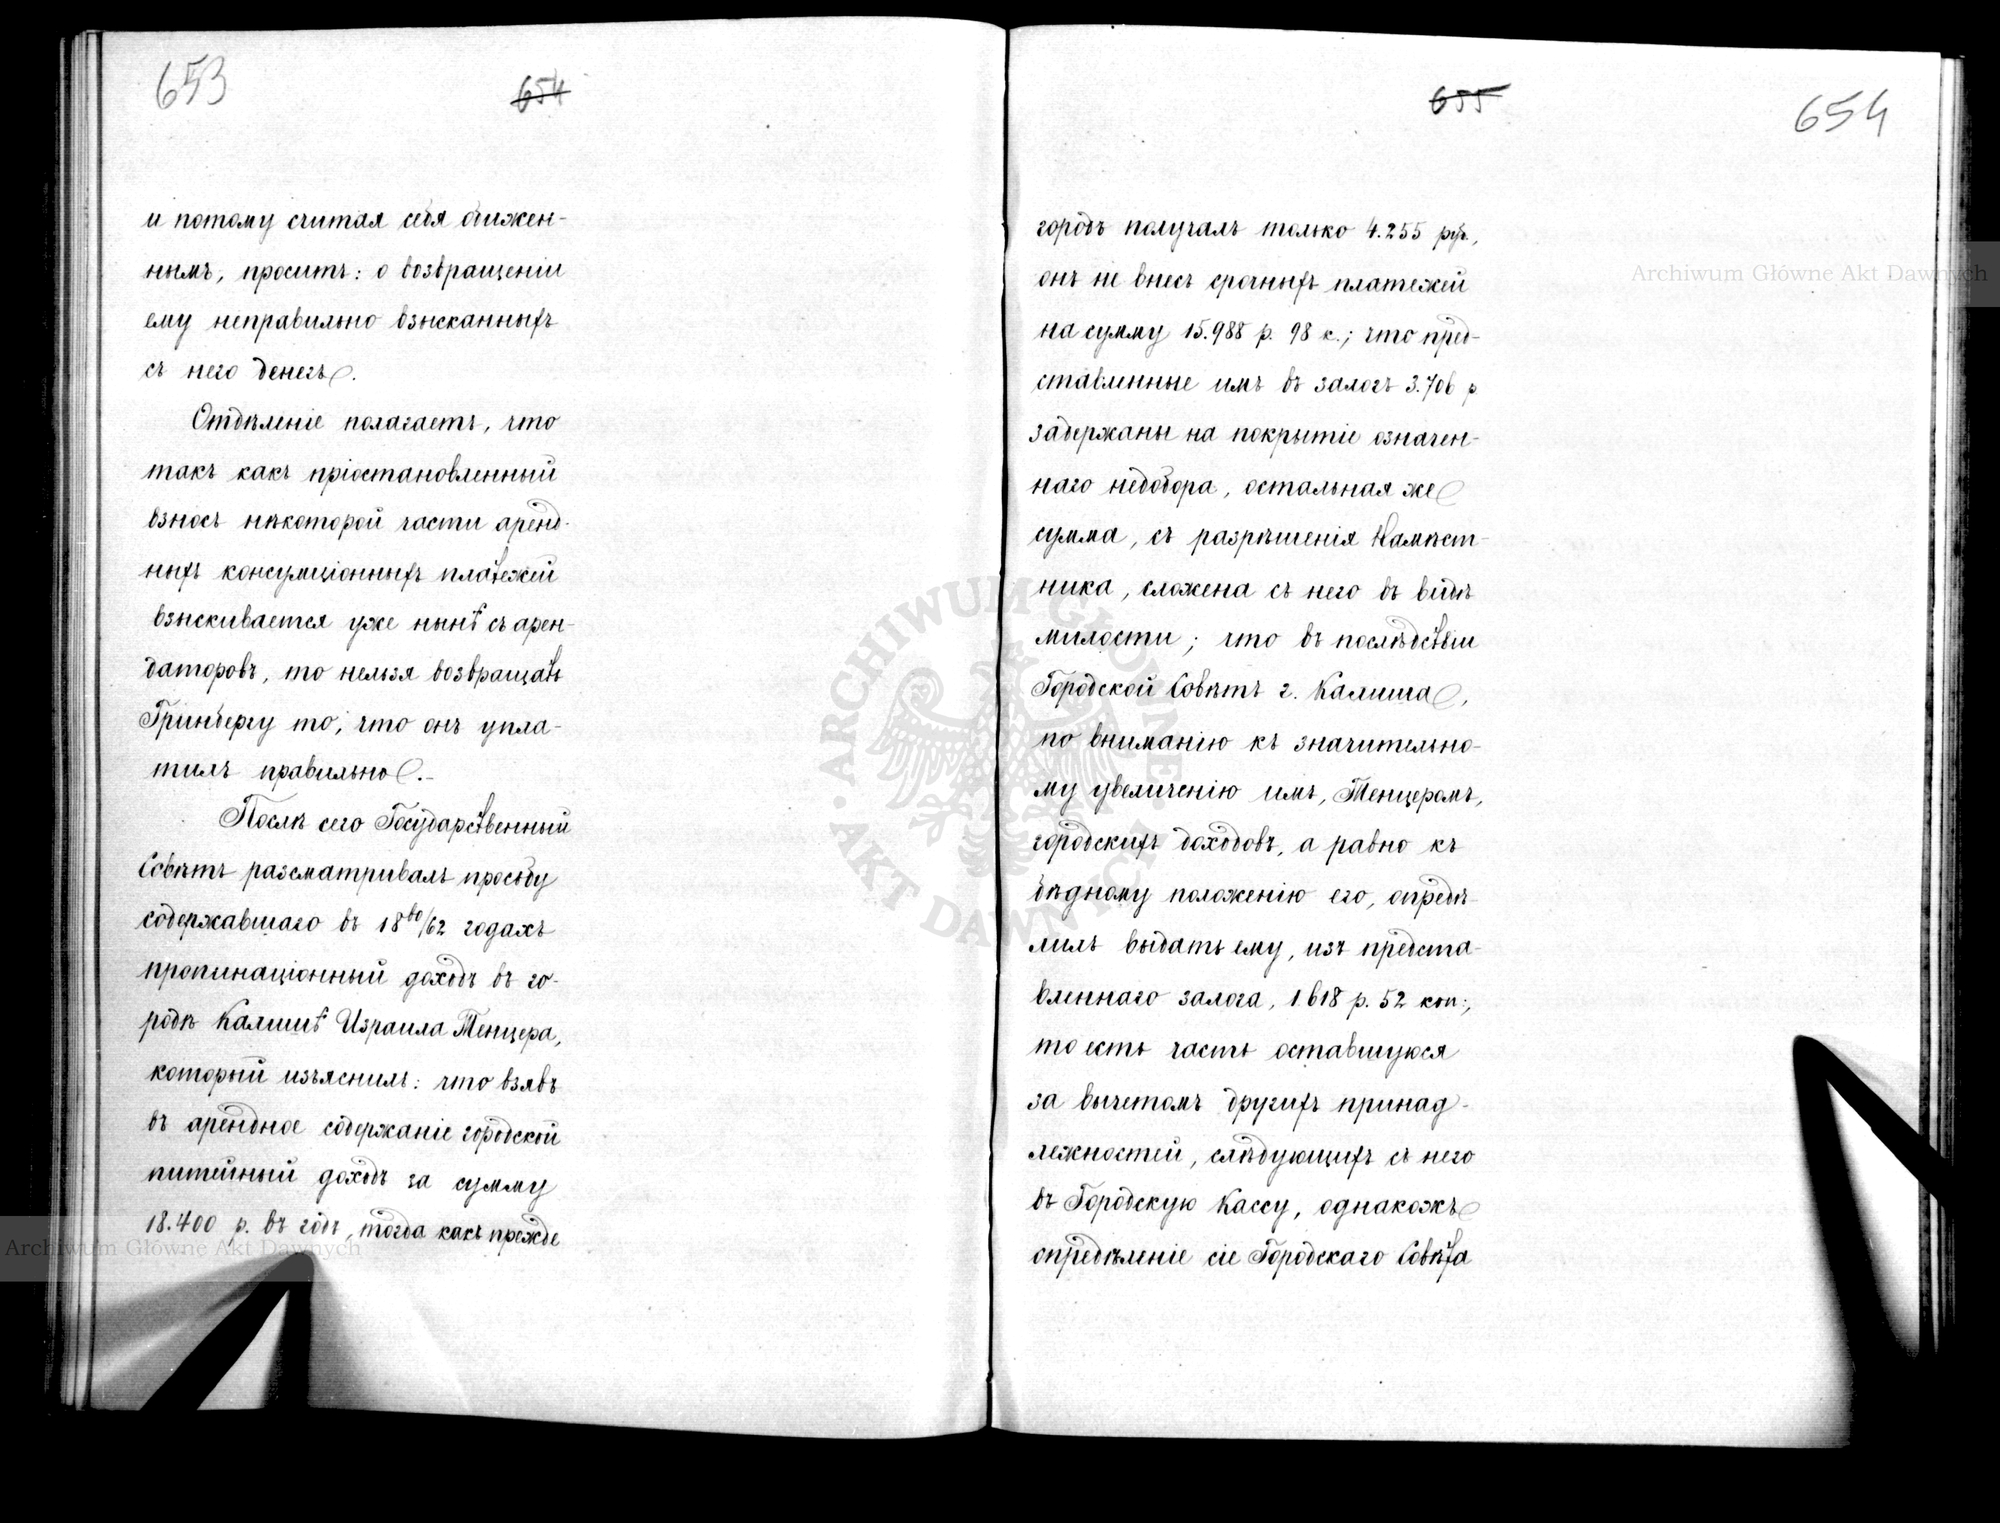 653
654
и потому считая себя обижен-
нымъ, проситъ: о возвращеніи
ему неправильно взысканныхъ
съ него денегъ.
Отдѣленіе полагаетъ, что
такъ какъ пріостановленный
взносъ нѣкоторой части аренд-
ныхъ консумціонныхъ платежей
взыскивается уже нынѣ съ арен-
даторовъ, то нельзя возвращать
Гринбергу то, что онъ упла-
тилъ правильно.-
Послѣ сего Государственный
Совѣтъ разсматривалъ просьбу
содержавшаго въ 1860/62 годахъ
пропинаціонный доходъ въ го-
родѣ Калишѣ Израила Тенцера,
который изъяснилъ: что взявъ
въ арендное содержаніе городской
питейный доходъ за сумму
18.400 р. въ годъ, тогда какъ прежде
655
654
городъ получалъ только 4.255 руб.,
онъ не внесъ срочныхъ платежей
на сумму 15.988 р. 98 к.; что пред-
ставленные имъ въ залогъ 3.706 р
задержаны на покрытіе означен-
наго недобора, остальная же
сумма, съ разрѣшенія Намѣст-
ника, сложена съ него въ видѣ
милости; что въ послѣдствіи
Городской Совѣтъ г. Калиша,
по вниманію къ значительно-
му увеличенію имъ, Тенцеромъ,
городскихъ доходовъ, а равно къ
бѣдному положенію его, опредѣ-
лилъ выдать ему, изъ предста-
вленнаго залога, 1.618 р. 52 коп.,
то есть часть оставшуюся
за вычетомъ другихъ принад-
лежностей, слѣдующихъ съ него
въ Городскую Кассу, однакожъ
опредѣленіе сіе Городскаго Совѣта
Archiwum Główne Akt Dawnych
Archiwum Główne Akt Dawnych
ARCHIWUM GŁÓWNE AKT DAWNYCH